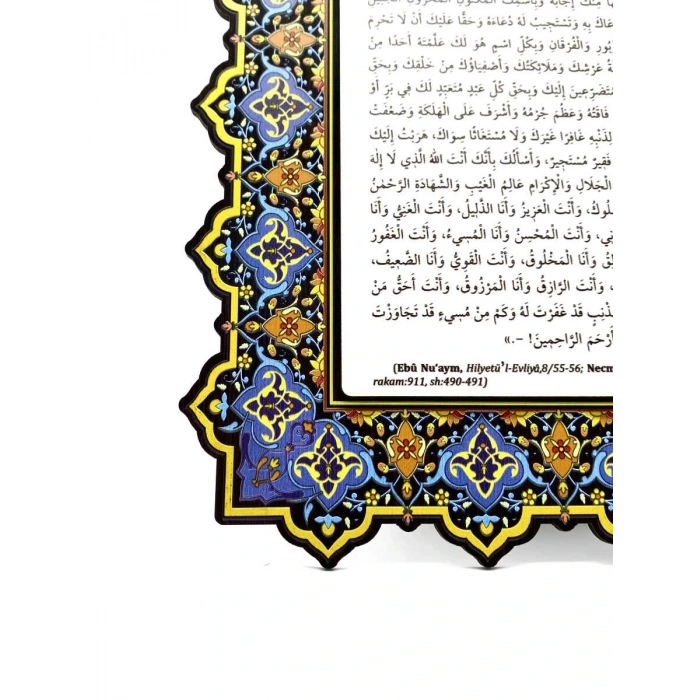 مِنْكَ إِجَابَةً وَبِاسْمِكَ الْمَخْزُونِ
عَاكَ بِهِ وَتَسْتَجِيبُ لَهُ دُعَاءَهُ وَحَقًّا عَلَيْكَ أَنْ لَا تَحْرِمَ
بُورِ وَالْفُرْقَانِ وَبِكُلِّ اسْمٍ هُوَ لَكَ عَلَّمْتَهُ أَحَدًا مِنْ
ةُ عَرْشِكَ وَمَلَائِكَتُكَ وَأَصْفِيَاؤُكَ مِنْ خَلْقِكَ وَبِحَقِّ
مُتَضَرِّعِينَ إِلَيْكَ وَبِحَقِّ كُلِّ عَبْدٍ مُتَعَبِّدٍ لَكَ فِي بَرٍّ أَوْ
فَاقَتُهُ وَعَظُمَ جُرْمُهُ وَأَشْرَفَ عَلَى الْهَلَكَةِ وَضَعُفَتْ
لِذَنْبِهِ غَافِرًا غَيْرَكَ وَلَا مُسْتَغَاثًا سِوَاكَ، هَرَبْتُ إِلَيْكَ
فَقِيرٌ مُسْتَجِيرٌ، وَأَسْأَلُكَ بِأَنَّكَ أَنْتَ اللهُ الَّذِي لَا إِلٰهَ
الْجَلَالِ وَالْإِكْرَامِ عَالِمُ الْغَيْبِ وَالشَّهَادَةِ الرَّحْمٰنُ
لُوكُ، وَأَنْتَ الْعَزِيزُ وَأَنَا الذَّلِيلُ، وَأَنْتَ الْغَنِيُّ وَأَنَا
نِي، وَأَنْتَ الْمُحْسِنُ وَأَنَا الْمُسِيءُ، وَأَنْتَ الْغَفُورُ
قُ وَأَنَا الْمَخْلُوقُ، وَأَنْتَ الْقَوِيُّ وَأَنَا الضَّعِيفُ،
، وَأَنْتَ الرَّازِقُ وَأَنَا الْمَرْزُوقُ، وَأَنْتَ أَحَقُّ مَنْ
ذْنِبٍ قَدْ غَفَرْتَ لَهُ وَكَمْ مِنْ مُسِيءٍ قَدْ تَجَاوَزْتَ
أَرْحَمَ الرَّاحِمِينَ! –.»
(Ebû Nu'aym, Hilyetü'l-Evliyâ,8/55-56; Necm
rakam:911, sh:490-491)